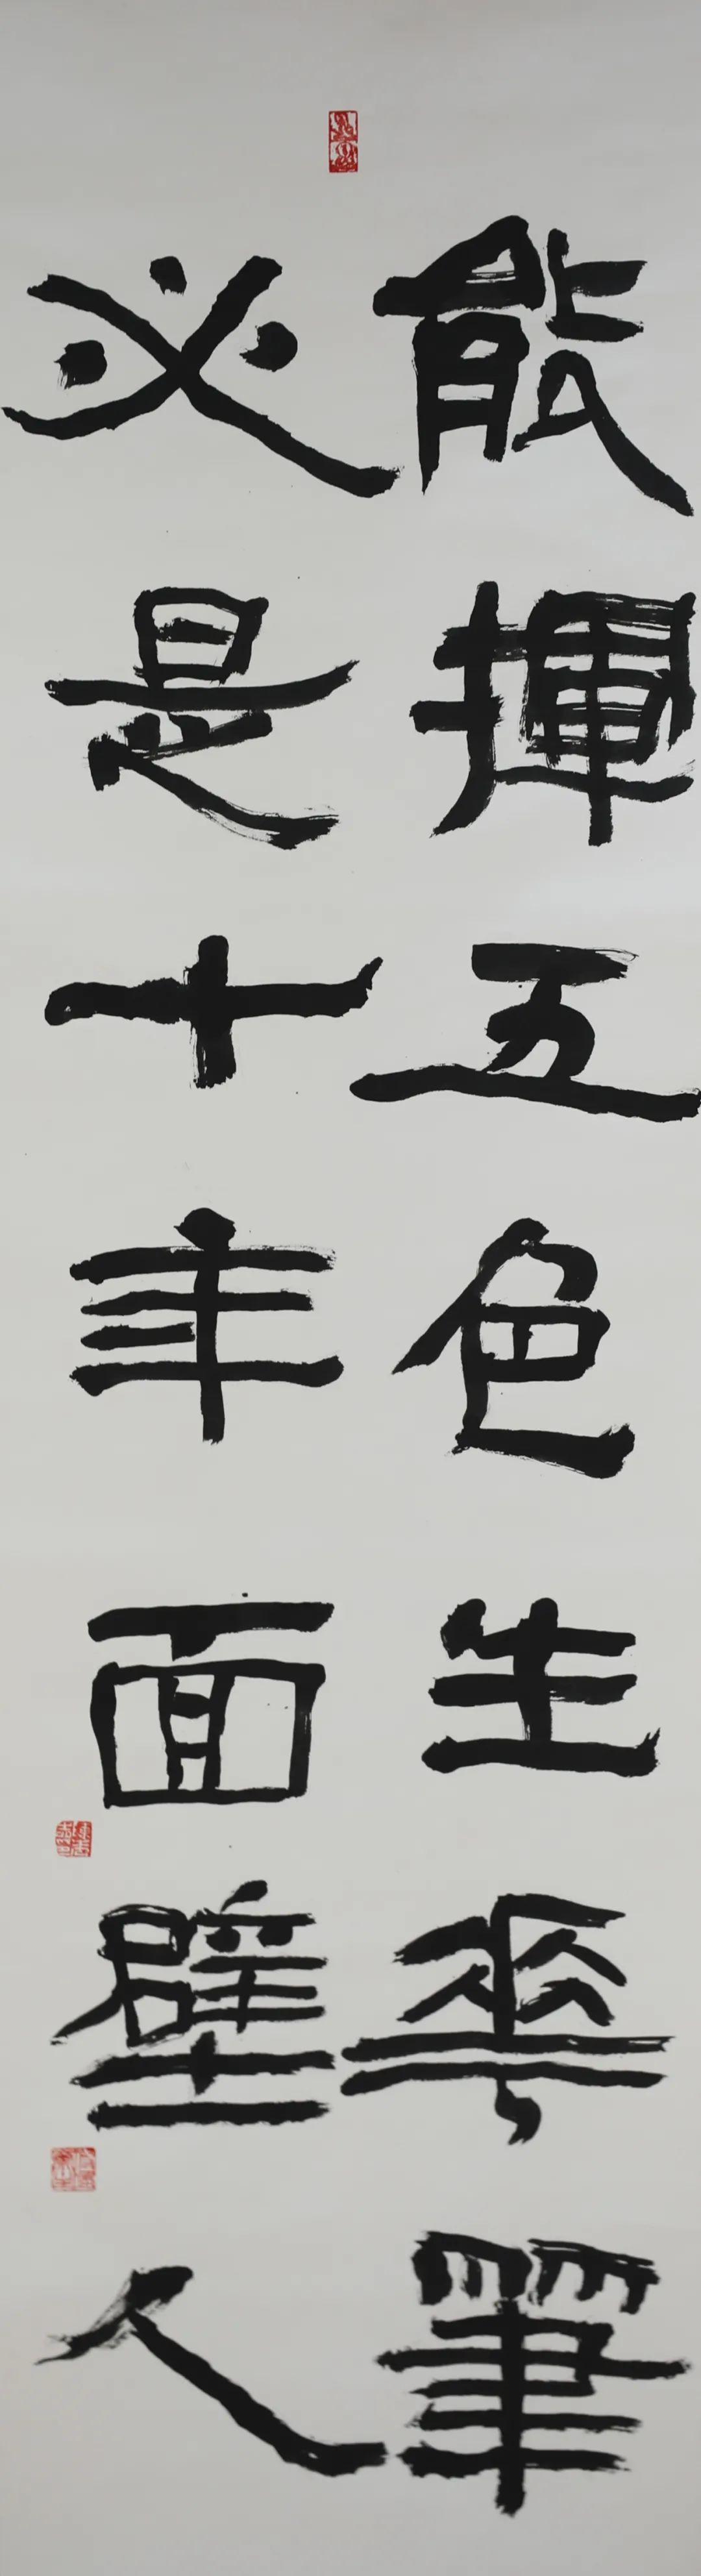 能揮五色生華筆
必是十年面壁人